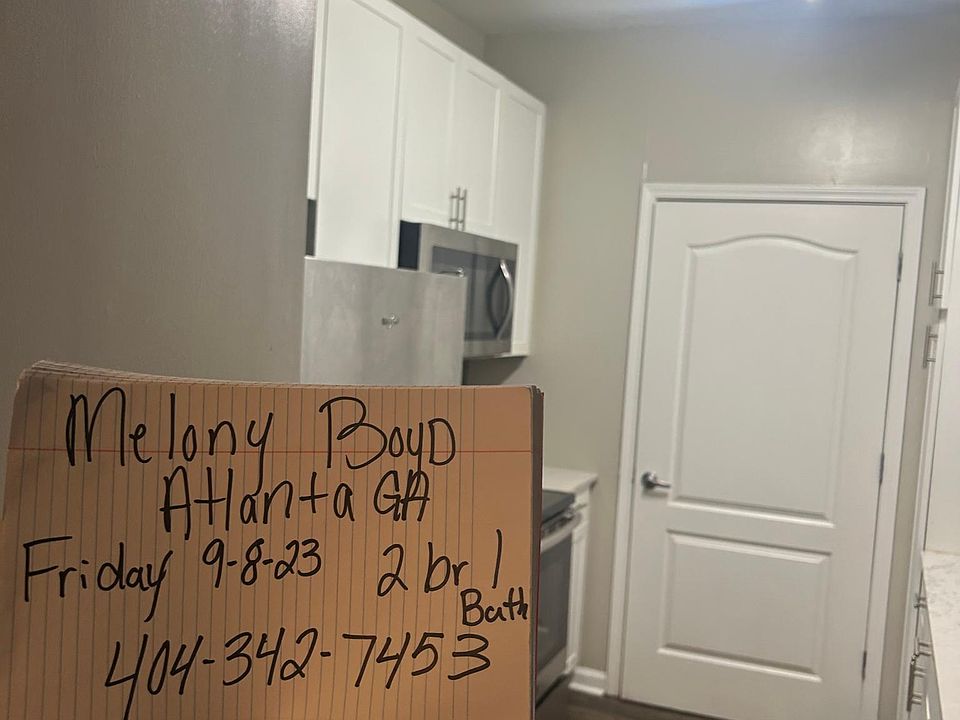 Melony Boyd
Atlanta GA
Friday 9-8-23 2 br 1
Bath
404-342-7453